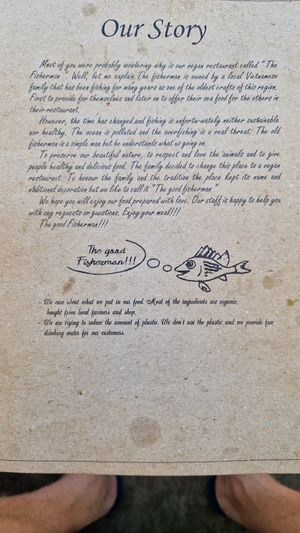 Our Story
Most of you were probably wondering why is our vegan restaurant called "The
Fisherman". Well, let me explain. The fisherman is owned by a local Vietnamese
family that has been fishing for many years as one of the oldest crafts of this region.
First to provide for themselves and later on to offer their sea food for the others in
their restaurant.
However, the time has changed and fishing is unfortunately neither sustainable
nor healthy. The ocean is polluted and the overfishing is a real threat. The old
fisherman is a simple man but he understands what is going on.
To preserve our beautiful nature, to respect and love the animals and to give
people healthy and delicious food, The family decided to change this place to a vegan
restaurant. To honour the family and the tradition the place kept its name and
additional decoration but we like to call it "The good fisherman"
We hope you will enjoy our food prepared with love. Our staff is happy to help you
with any requests or questions. Enjoy your meal!!!!
The good Fisherman!!!!
The good
Fisherman!!!
- We care about what we put in our food. Most of the ingredients are organic,
bought from local farmers and shop.
- We are trying to reduce the amount of plastic. We don't use the plastic and we provide free
drinking water for our customers.